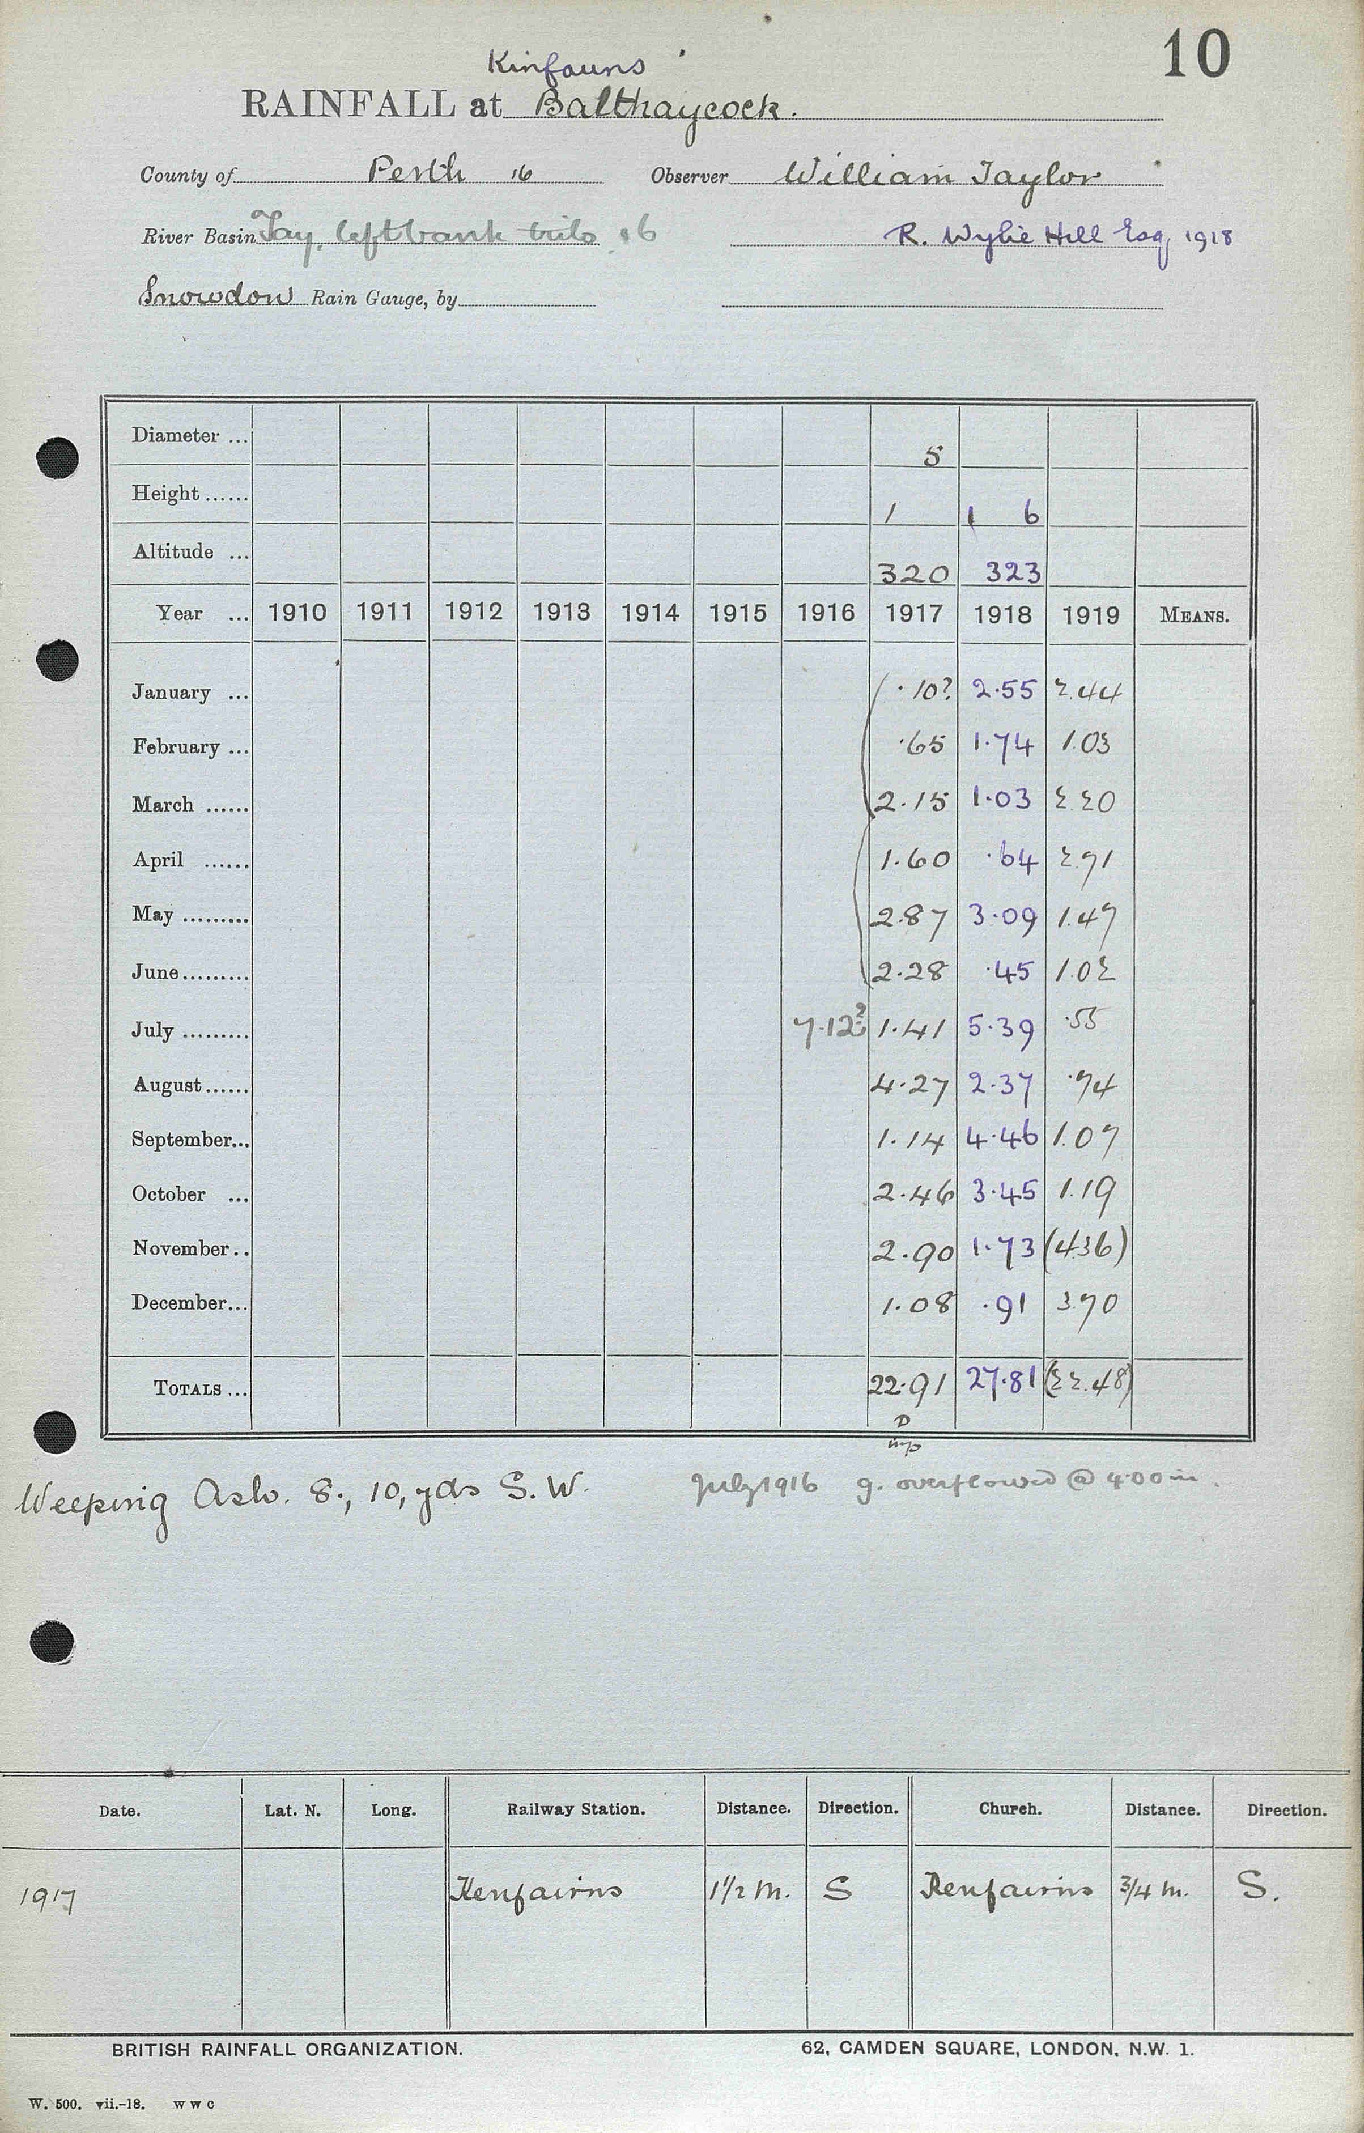 10
Kinfauns
RAINFALL at Balthaycock.
County of Perth 16 Observer William Taylor
River Basin Tay, left bank tribs 16 R. Wylie Hill Esq, 1918
Snowdon Rain Gauge, by
Diameter ... 5
Height ...... 1 1 6
Altitude ... 320 323
Year ... 1910 1911 1912 1913 1914 1915 1916 1917 1918 1919 MEANS.
January ... .10? 2.55 2.44
February ... .65 1.74 1.03
March ...... 2.15 1.03 2.20
April ...... 1.60 .64 2.91
May ......... 2.87 3.09 1.47
June......... 2.28 .45 1.02
July ......... 7.12? 1.41 5.39 .55
August...... 4.27 2.37 .74
September... 1.14 4.46 1.07
October ... 2.46 3.45 1.19
November.. 2.90 1.73 (4.36)
December... 1.08 .91 3.70
TOTALS ... 22.91 27.81 (22.48)
Weeping Ash. 8., 10, yds S.W. July 1916 g. overflowed @ 4.00 in.
Date. Lat. N. Long. Railway Station. Distance. Direction. Church. Distance. Direction.
1917 Kenfairns 1 1/2 m. S Kenfairns 3/4 m. S.
BRITISH RAINFALL ORGANIZATION. 62, CAMDEN SQUARE, LONDON, N.W. 1.
W. 500. vii.-18. W W C